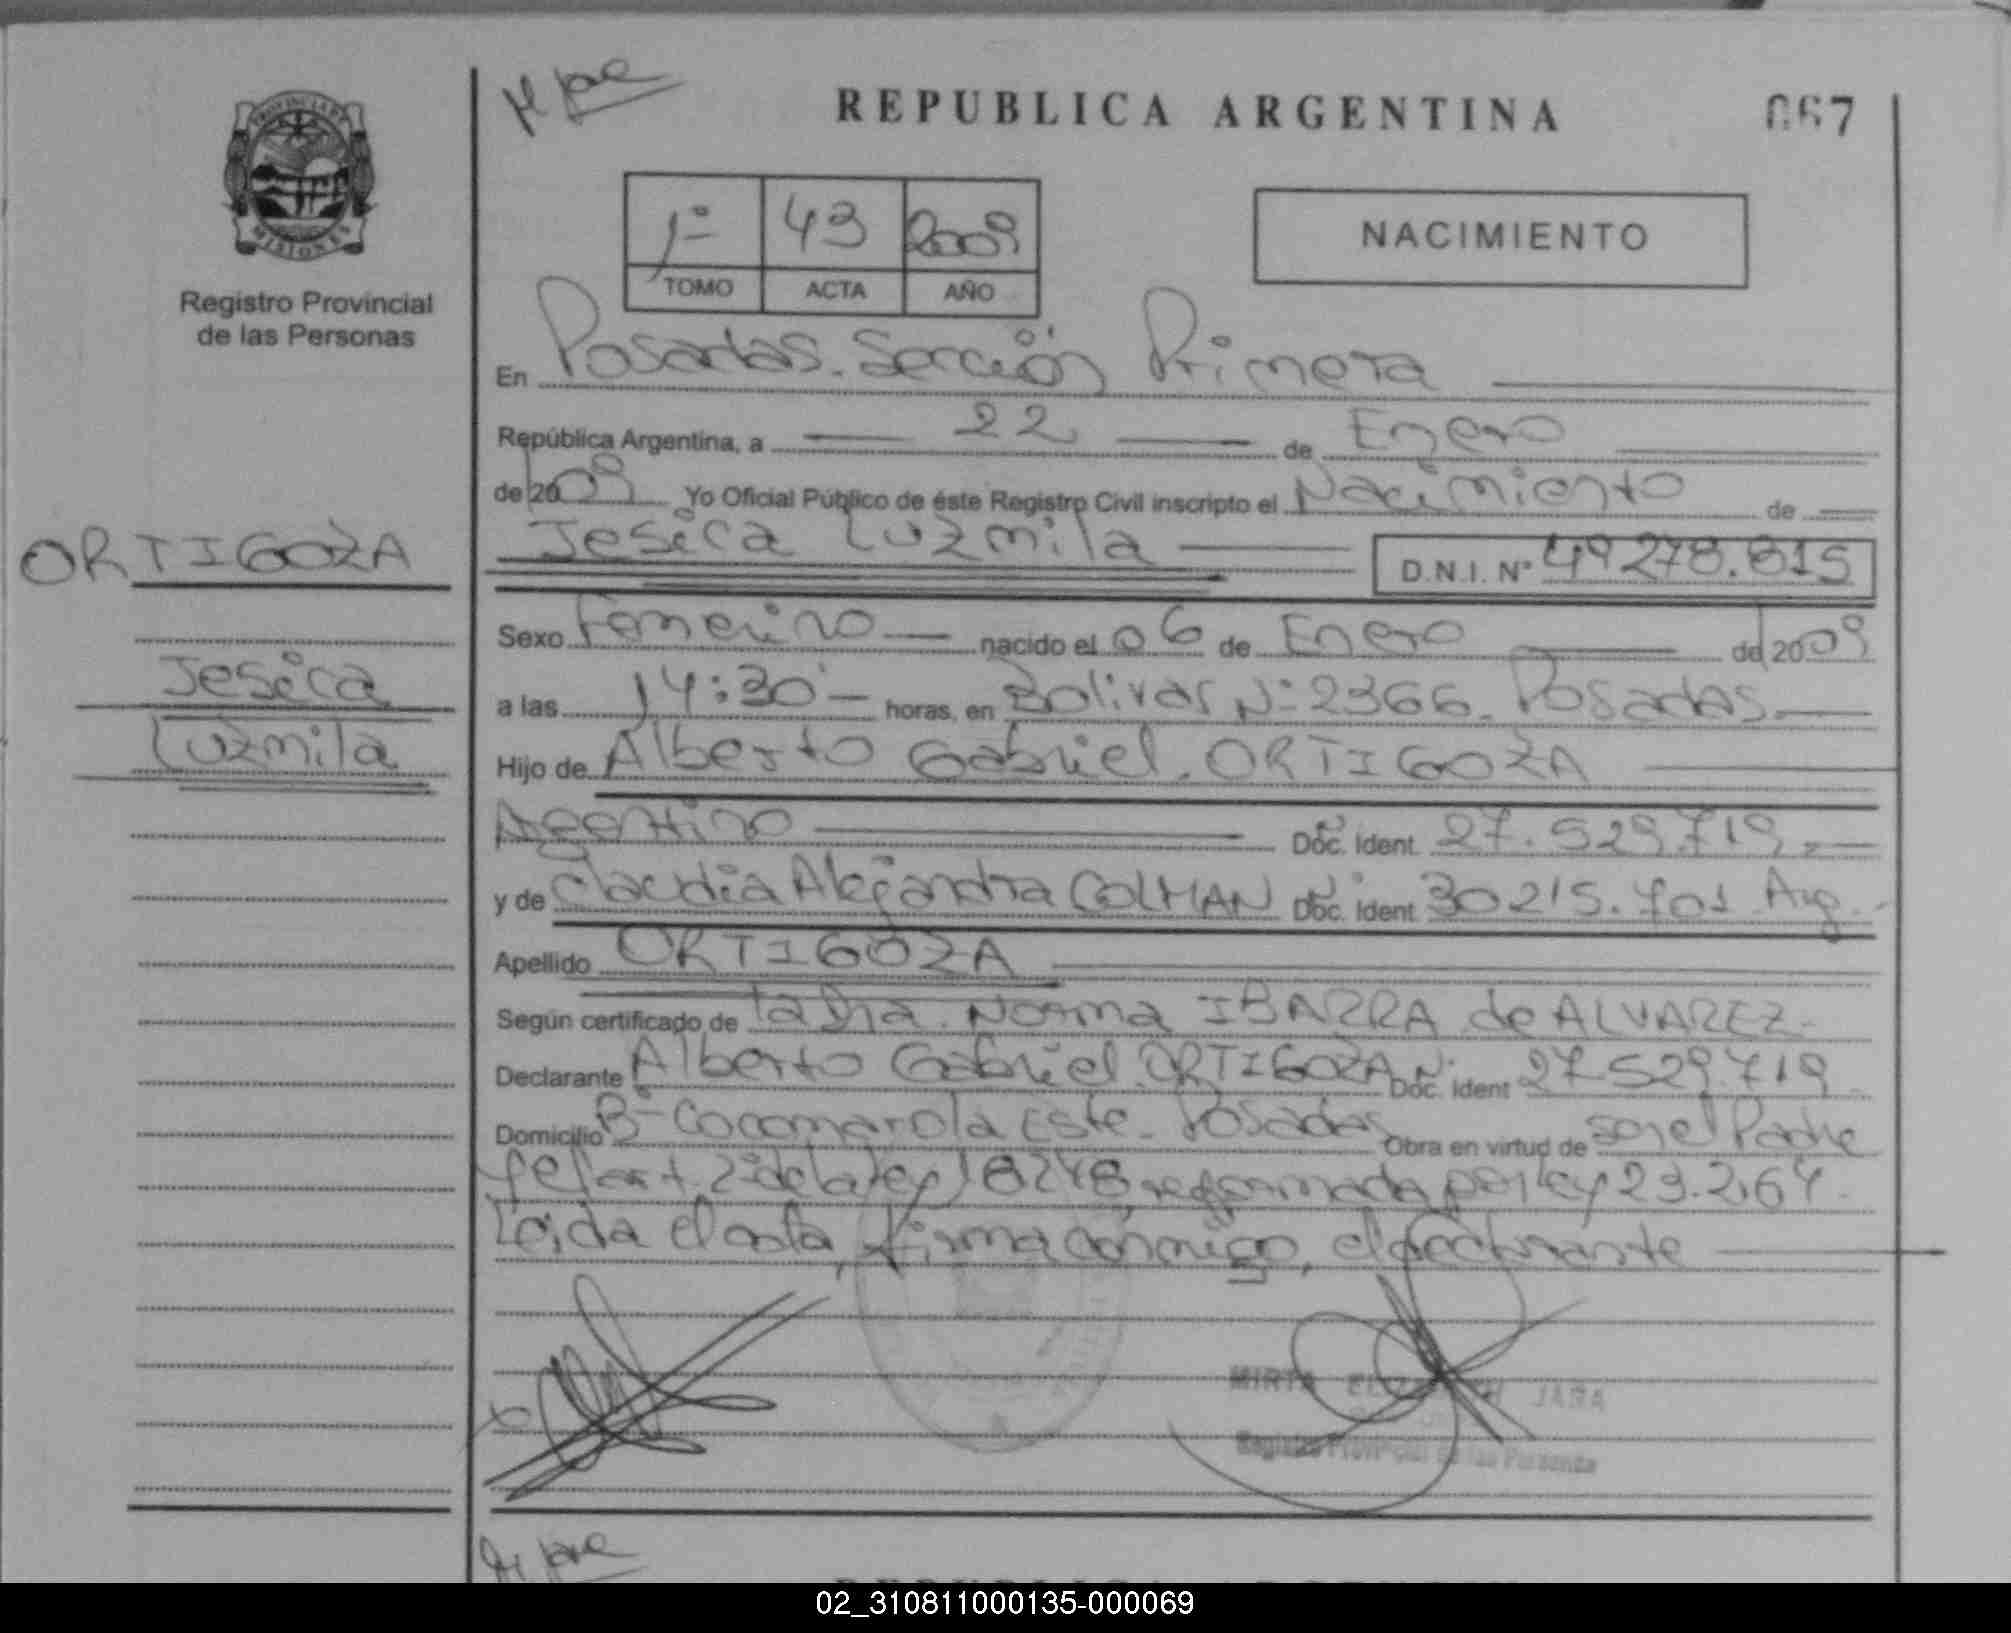 REPUBLICA ARGENTINA
067
PROVINCIA DE
MISIONES
Registro Provincial
de las Personas
1º 43 2009
TOMO ACTA AÑO
NACIMIENTO
En Posadas. Sección Primera
República Argentina, a 22 de Enero
de 2009 Yo Oficial Público de éste Registro Civil inscripto el Nacimiento de
Jesica Luzmila D.N.I. Nº 49278.815
ORTIGOZA
Jesica
Luzmila
Sexo Femenino nacido el 06 de Enero de 2009
a las 14:30 horas, en Bolivar Nº 2366. Posadas.
Hijo de Alberto Gabriel. ORTIGOZA
Argentino Doc. Ident. 27.529.719.
y de Claudia Alejandra COLMAN Doc. Ident. 30215.701 Arg.
Apellido ORTIGOZA
Según certificado de la Dra. Norma IBARRA de ALVAREZ.
Declarante Alberto Gabriel. ORTIGOZA Doc. Ident 27529.719
Domicilio Bº Cocomarola Este. Posadas Obra en virtud de ser el Padre
art 2º de la ley 18248, reformada por ley 23.264.
Leida el acta, firma conmigo, el declarante
MIRTA ELIZABETH JARA
Registro Provincial de las Personas
02_310811000135-000069